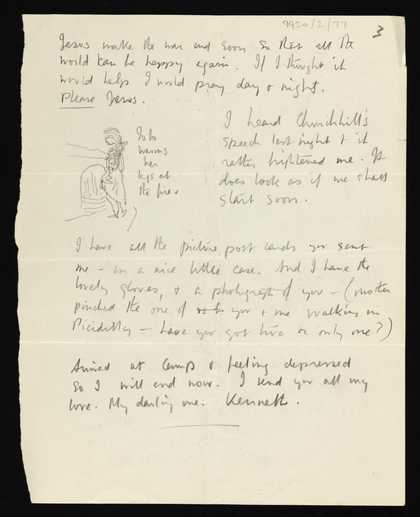 9920/2/77
3
Jesus make the war end soon so that all the
world can be happy again. If I thought it
would help I would pray day & night.
Please Jesus.
I heard Churchill's
speech last night & it
rather frightened me. It
does look as if we shall
start soon.
warms
her
legs at
the fire.
I have all the picture post cards you sent
me - in a nice little case. And I have the
lovely gloves, & a photograph of you - (mother
pinched the one of you & me walking in
Picidilly - have you got two or only one?)
Arrived at Camp & feeling depressed
so I will end now. I send you all my
love. My darling one. Kenneth.